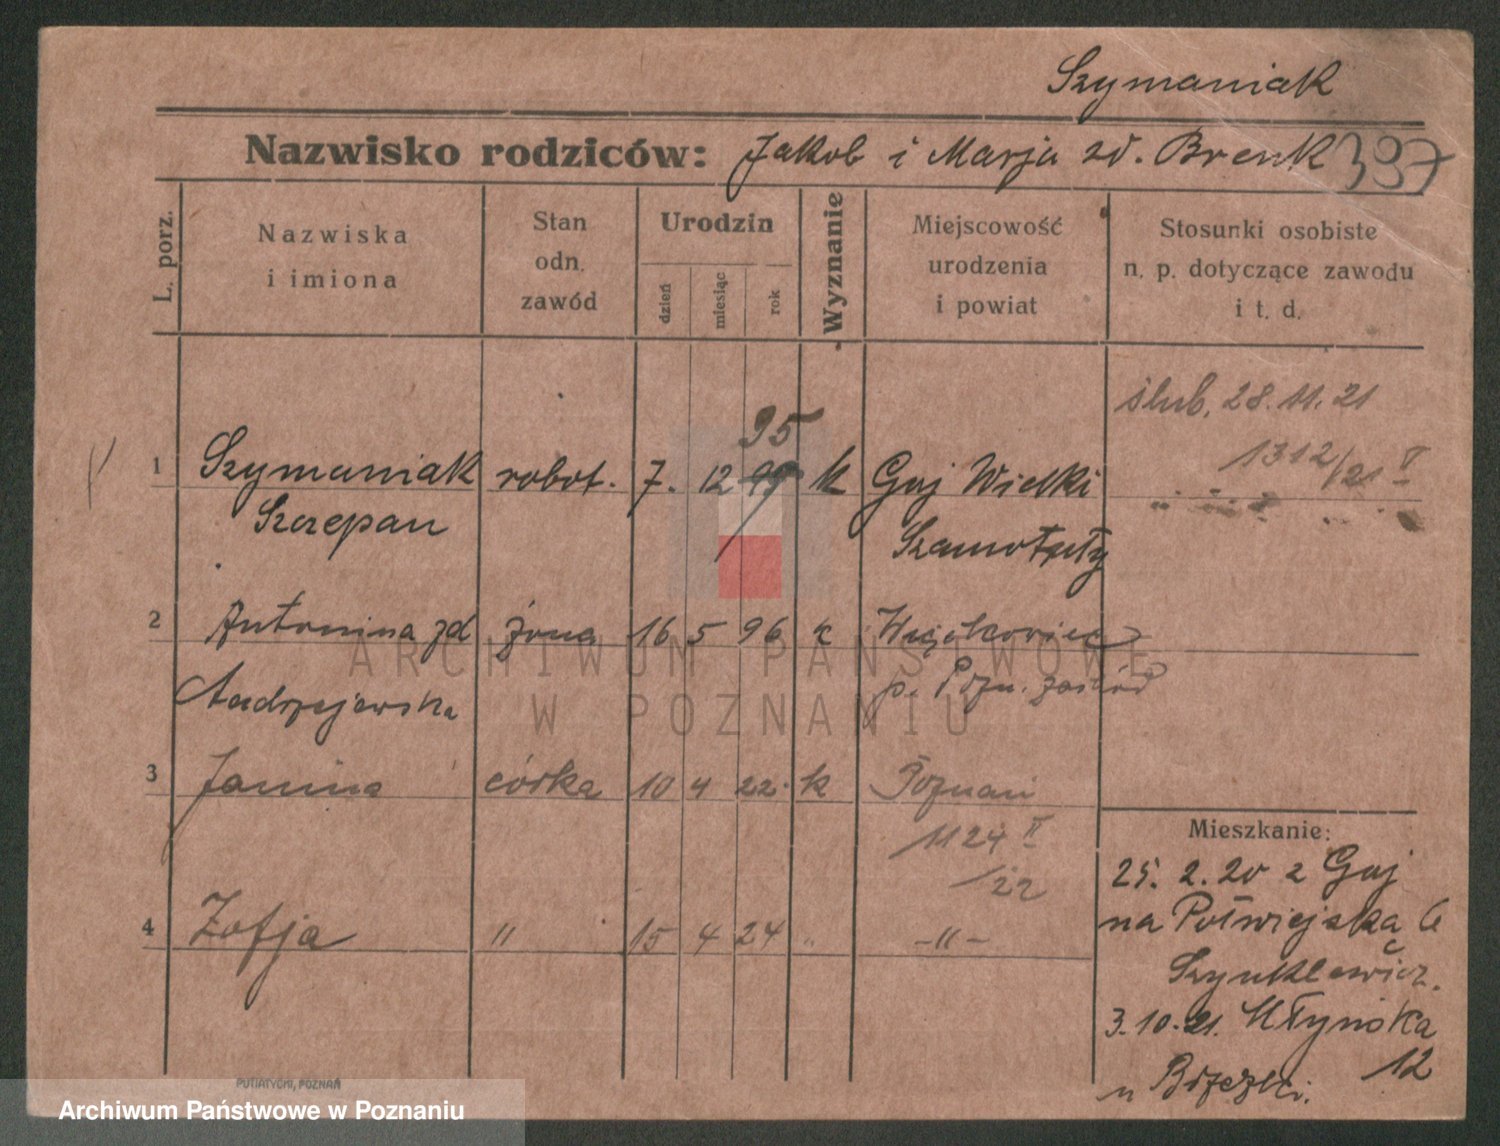 Szymaniak
Nazwisko rodziców: Jakob i Marja zd. Brenk 397
L. porz.
Nazwiska
i imiona
Stan
odn.
zawód
Urodzin
dzień
miesiąc
rok
Wyznanie
Miejscowość
urodzenia
i powiat
Stosunki osobiste
n. p. dotyczące zawodu
i t. d.
ślub. 28.11.21
1312/21 V
95
1 Szymaniak robot. 7. 12 k Gaj Wielki
Szczepan Szamotuły
2 Antonina zd żona 16 5 96 k
Andrzejewska p. Pozn. zachód
3 Janina córka 10 4 22. k Poznań
1124 II
/22
4 Zofja " 15 4 24 " -"-
Mieszkanie:
25. 2. 20 z Gaj
na Półwiejska 6
c Szynklewicz.
3.10.21. Młyńska
12
u
ARCHIWUM PAŃSTWOWE
W POZNANIU
PUTIATYCKI, POZNAŃ
Archiwum Państwowe w Poznaniu